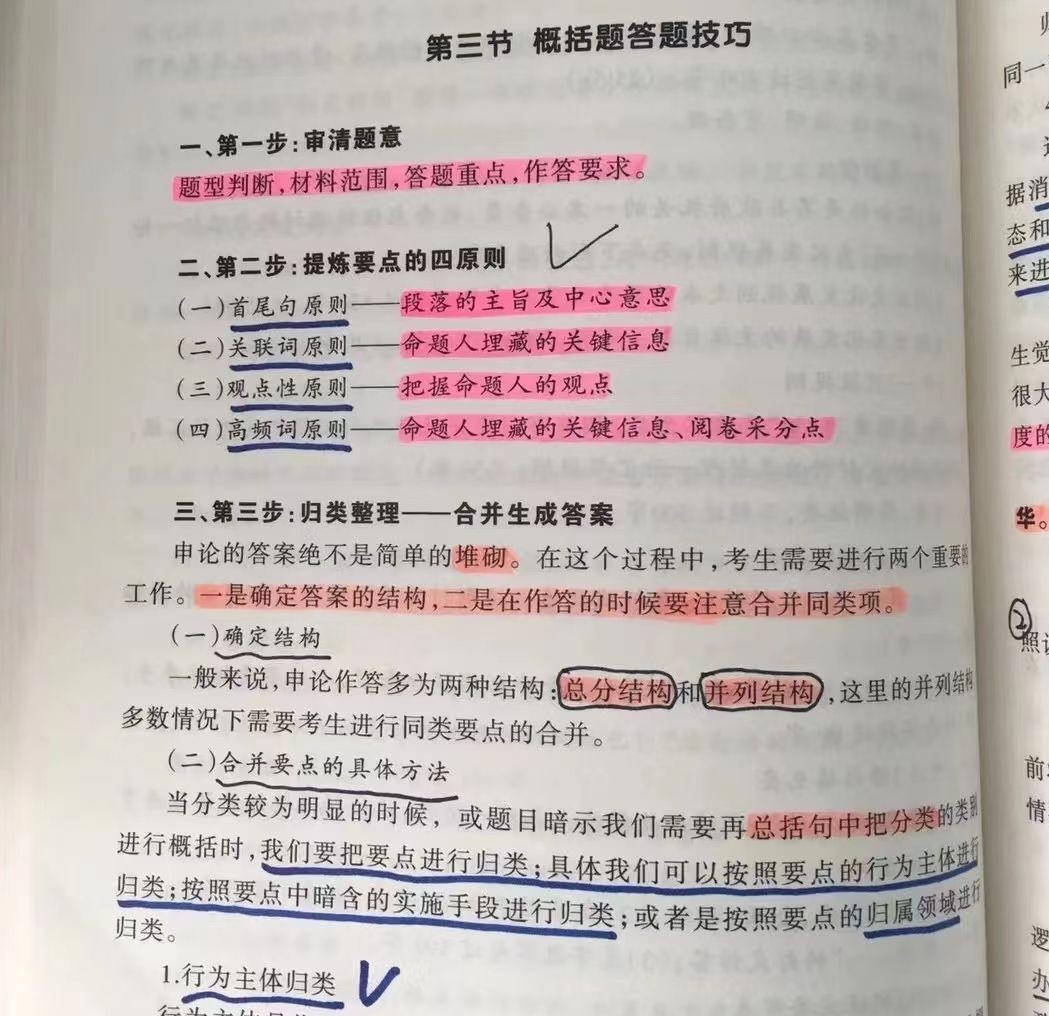 第三节 概括题答题技巧
一、第一步:审清题意
题型判断,材料范围,答题重点,作答要求。
二、第二步:提炼要点的四原则
(一)首尾句原则——段落的主旨及中心意思
(二)关联词原则——命题人埋藏的关键信息
(三)观点性原则——把握命题人的观点
(四)高频词原则——命题人埋藏的关键信息、阅卷采分点
三、第三步:归类整理——合并生成答案
申论的答案绝不是简单的堆砌。在这个过程中,考生需要进行两个重要的
工作。一是确定答案的结构,二是在作答的时候要注意合并同类项。
(一)确定结构
一般来说,申论作答多为两种结构:总分结构和并列结构,这里的并列结构
多数情况下需要考生进行同类要点的合并。
(二)合并要点的具体方法
当分类较为明显的时候,或题目暗示我们需要再总括句中把分类的类别
进行概括时,我们要把要点进行归类;具体我们可以按照要点的行为主体进行
归类;按照要点中暗含的实施手段进行归类;或者是按照要点的归属领域进行
归类。
1.行为主体归类
同一
据消
态和
来进
生觉
很大
度的
华。
②
照
前
情
逻
办